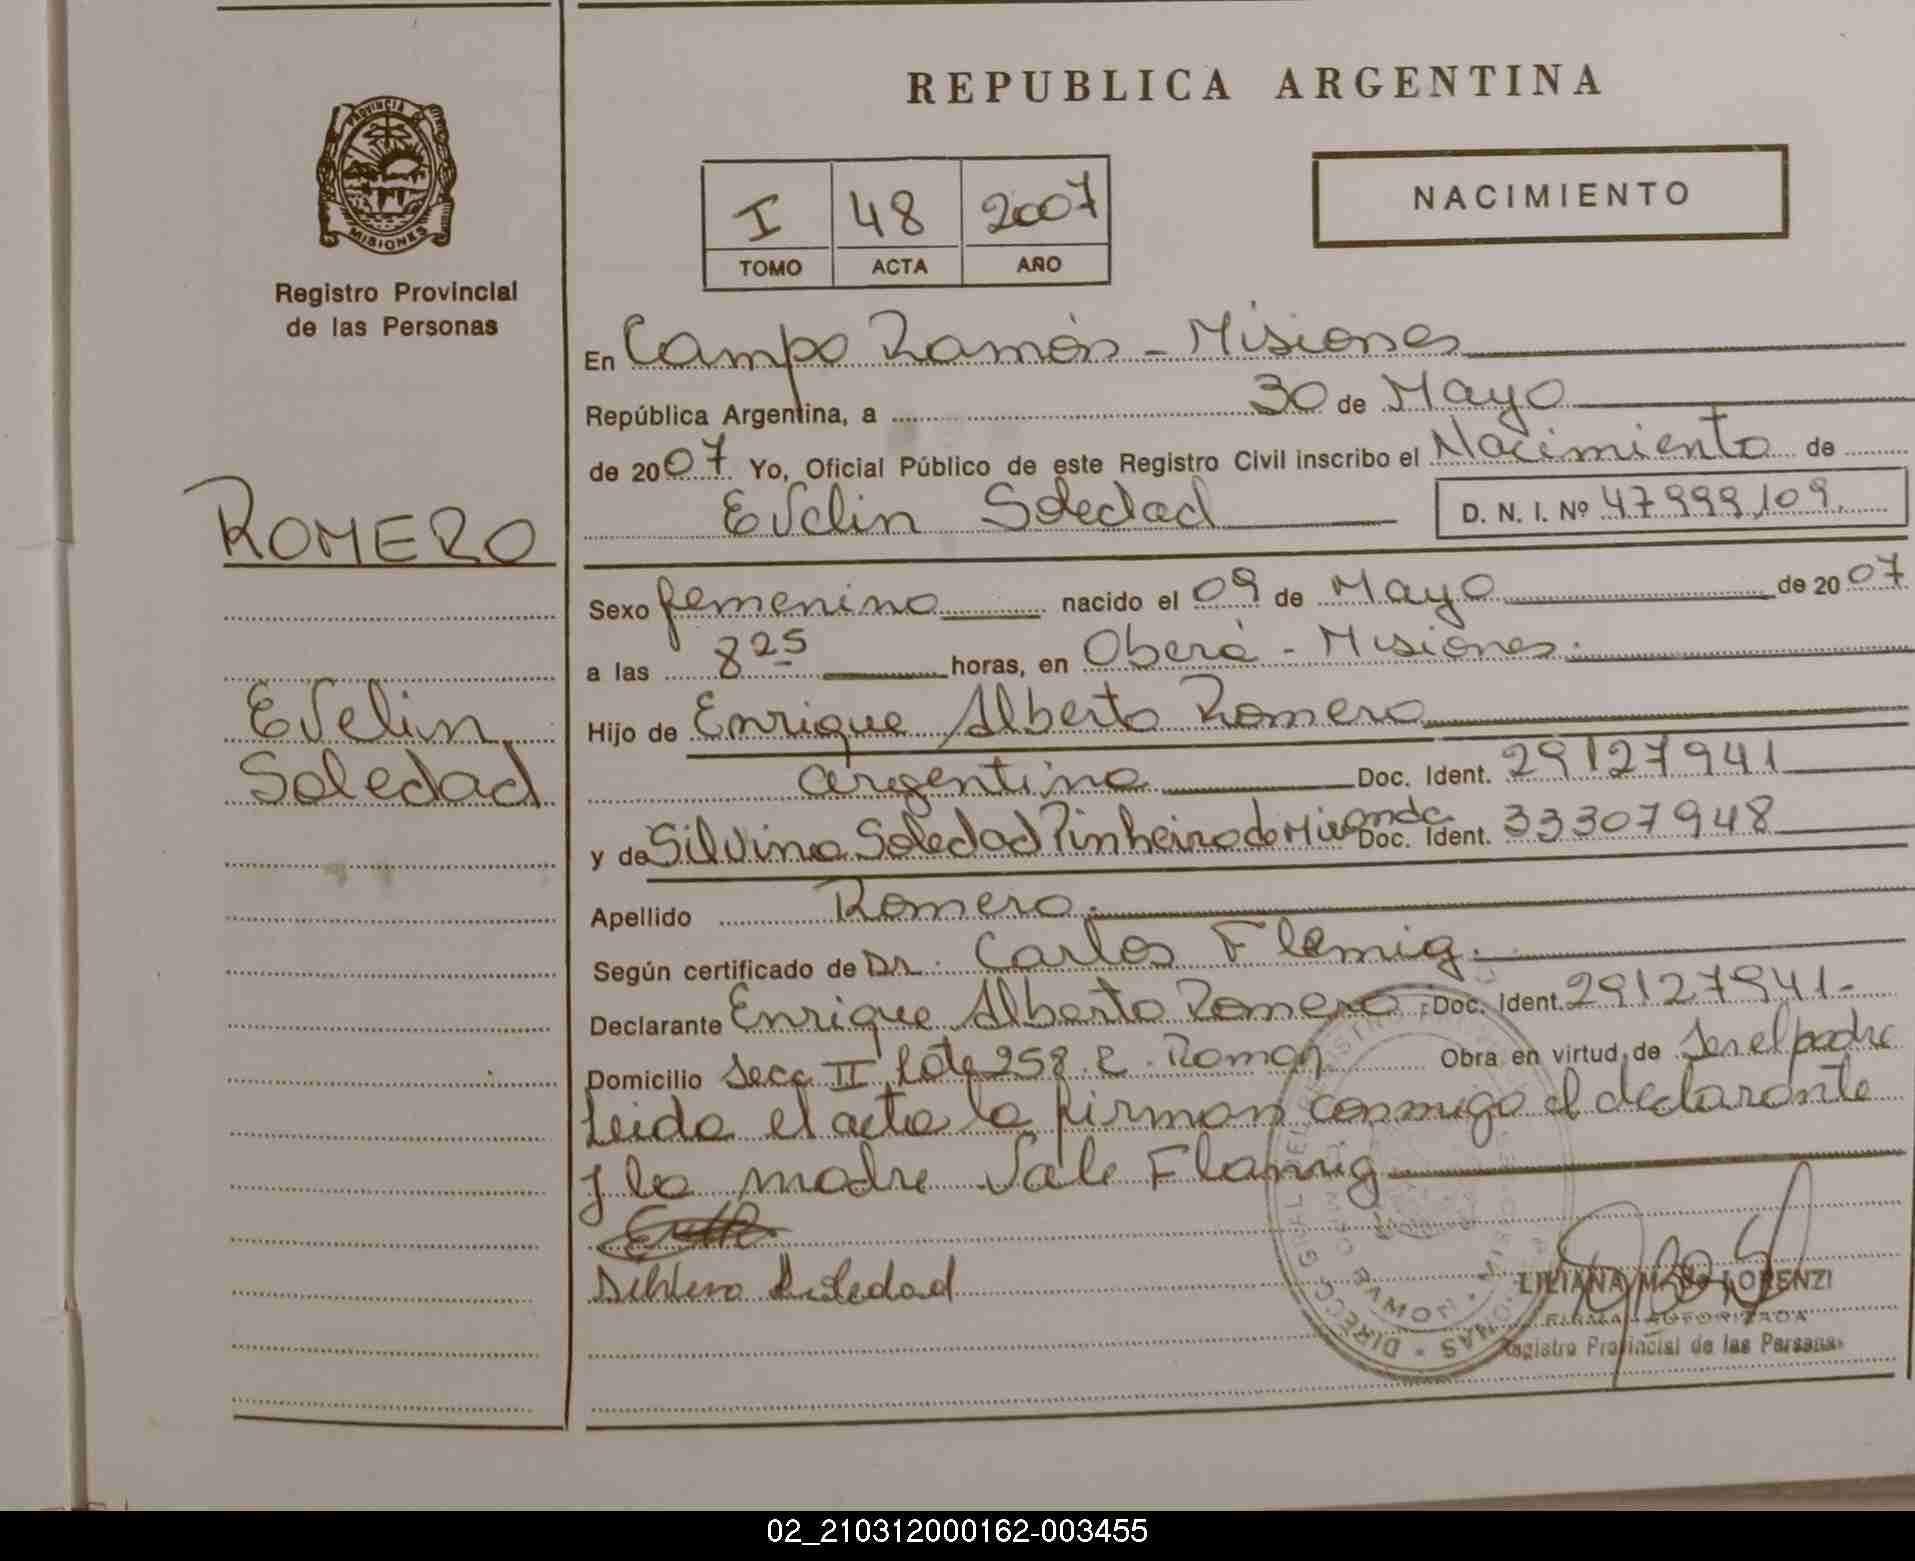 REPUBLICA ARGENTINA
PROVINCIA DE
MISIONES
Registro Provincial
de las Personas
I 48 2007
TOMO ACTA AÑO
NACIMIENTO
En Campo Ramón - Misiones
República Argentina, a 30 de Mayo
de 2007 Yo, Oficial Público de este Registro Civil inscribo el Nacimiento de
Evelin Soledad D. N. I. Nº 47999109
ROMERO
Evelin
Soledad
Sexo femenino nacido el 09 de Mayo de 2007
a las 8 25 horas, en Oberá - Misiones.
Hijo de Enrique Alberto Romero
argentino Doc. Ident. 29127941
y de Silvina Soledad Pinheiro de Miranda Doc. Ident. 33307948
Apellido Romero.
Según certificado de Dr. Carlos Flemig.
Declarante Enrique Alberto Romero Doc. Ident. 29127941-
Domicilio Secc II Lote 258 C. Ramon Obra en virtud de ser el padre
Leida el acta la firman conmigo el declarante
y la madre Vale Flamig
Soledad
LILIANA M. LORENZI
FIRMA AUTORIZADA
Registro Provincial de las Personas
02_210312000162-003455